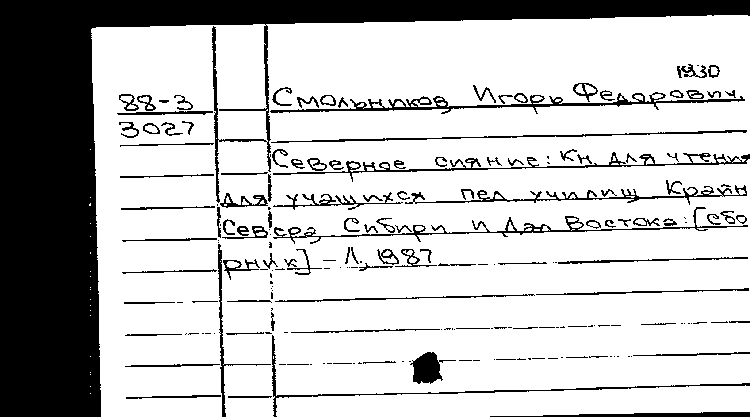 1930
88-3 Смольников, Игорь Федорович.
3027
Северное сияние: Кн. для чтения
для учащихся пед. училищ Крайн
Севера, Сибири и Дал. Востока: [сбо
рник] – Л., 1987